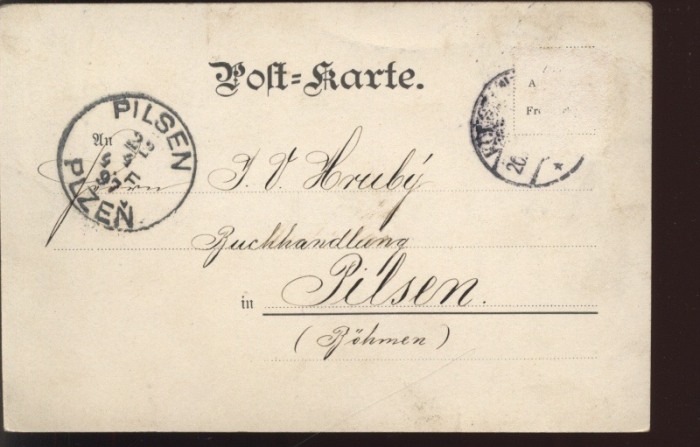 Post-Karte.
A
Fr
PILSEN
PLZEŇ
97
An
Herrn J. V. Hrubý
Buchhandlung
in Pilsen.
(Böhmen)
26